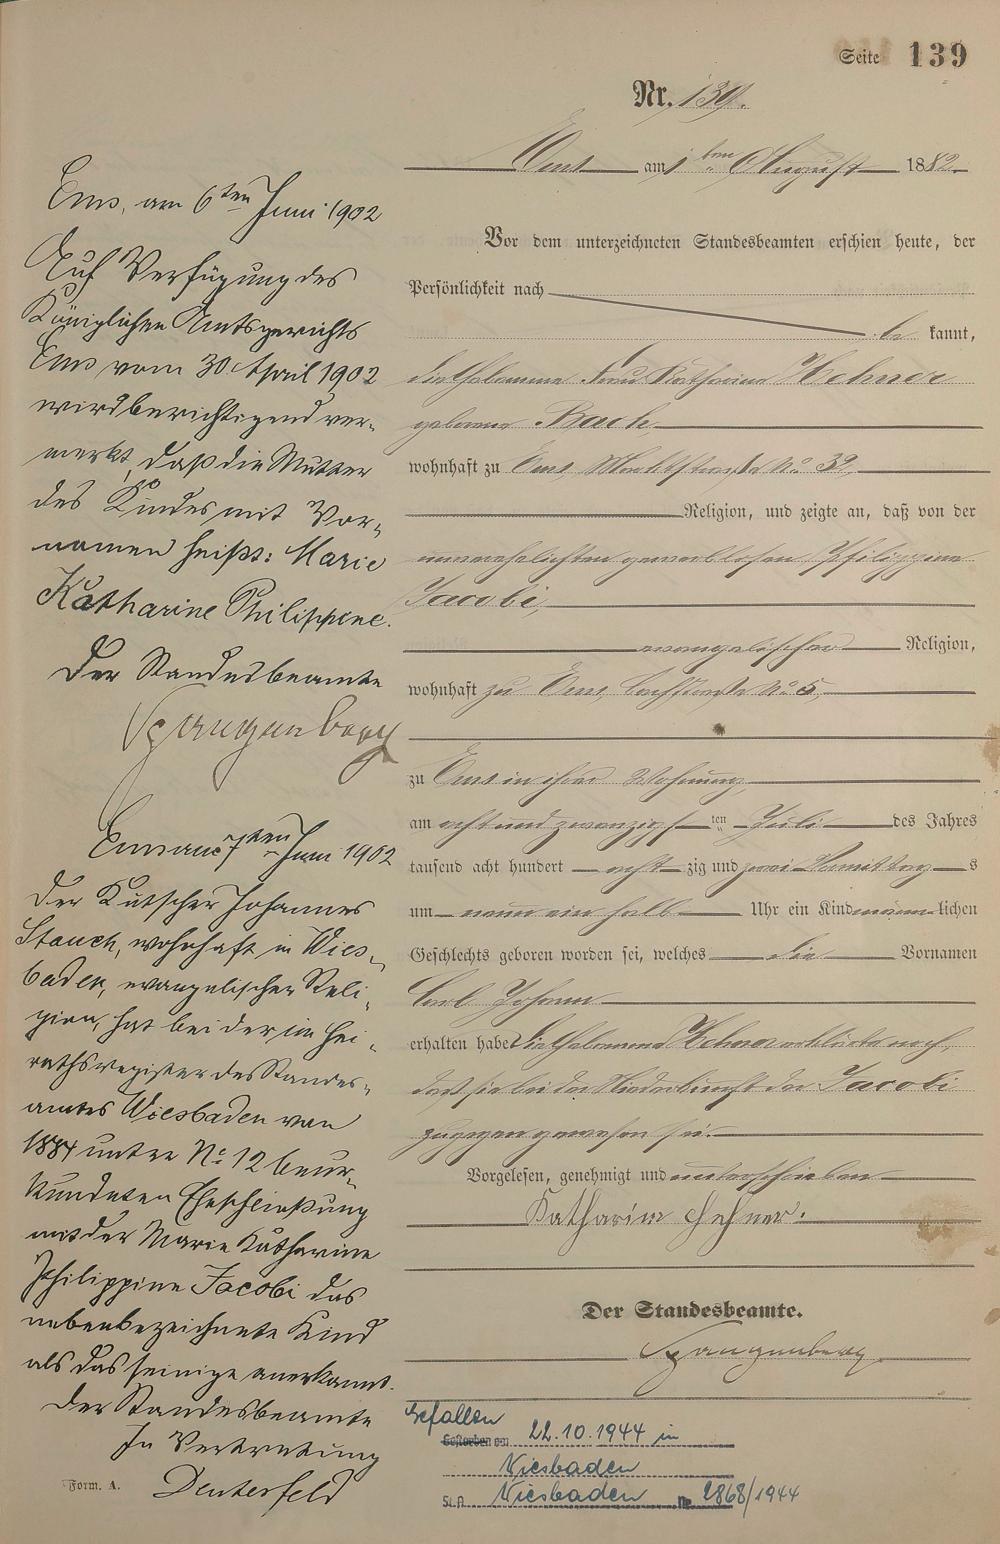 Seite 139
Nr. 139.
Ems am 1ten August 1882.
Vor dem unterzeichneten Standesbeamten erschien heute, der
Persönlichkeit nach
be kannt,
die Hebamme Frau Katharina Hehner
geborene Bach
wohnhaft zu Ems, Marktstraße No 32,
Religion, und zeigte an, daß von der
unverehelichten gewerblosen Philippine
Jacobi,
evangelischer Religion,
wohnhaft zu Ems, Bachstraße No 5,
zu Ems in ihrer Wohnung,
am acht und zwanzigsten Juli des Jahres
tausend acht hundert acht zig und zwei Vormittags
um neun ein halb Uhr ein Kind männlichen
Geschlechts geboren worden sei, welches die Vornamen
Carl Johann
erhalten habe. Die Hebamme Hehner erklärte noch,
daß sie bei der Niederkunft der Jacobi
zugegen gewesen sei.
Vorgelesen, genehmigt und unterschrieben
Katharina Hehner.
Der Standesbeamte.
Spangenberg
Ems, am 6ten Juni 1902
Auf Verfügung des
Königlichen Amtsgerichts
Ems vom 30. April 1902
wird berichtigend ver-
merkt, daß die Mutter
des Kindes mit Vor-
namen heißt: Marie
Katharine Philippine.
Der Standesbeamte
Spangenberg
Ems am 7ten Juni 1902
Der Kutscher Johannes
Stauch, wohnhaft in Wies-
baden, evangelischer Reli-
gion, hat bei der im Hei-
rathsregister des Standes-
amtes Wiesbaden von
1884 unter No 12 beur-
kundeten Eheschließung
mit der Marie Katharine
Philippine Jacobi das
nebenbezeichnete Kind
als das seinige anerkannt.
Der Standesbeamte
In Vertretung
Deuterfeld
Form. A.
Gefallen
Gestorben am 22.10.1944 in
Wiesbaden
St.A. Wiesbaden Nr. 2868/1944